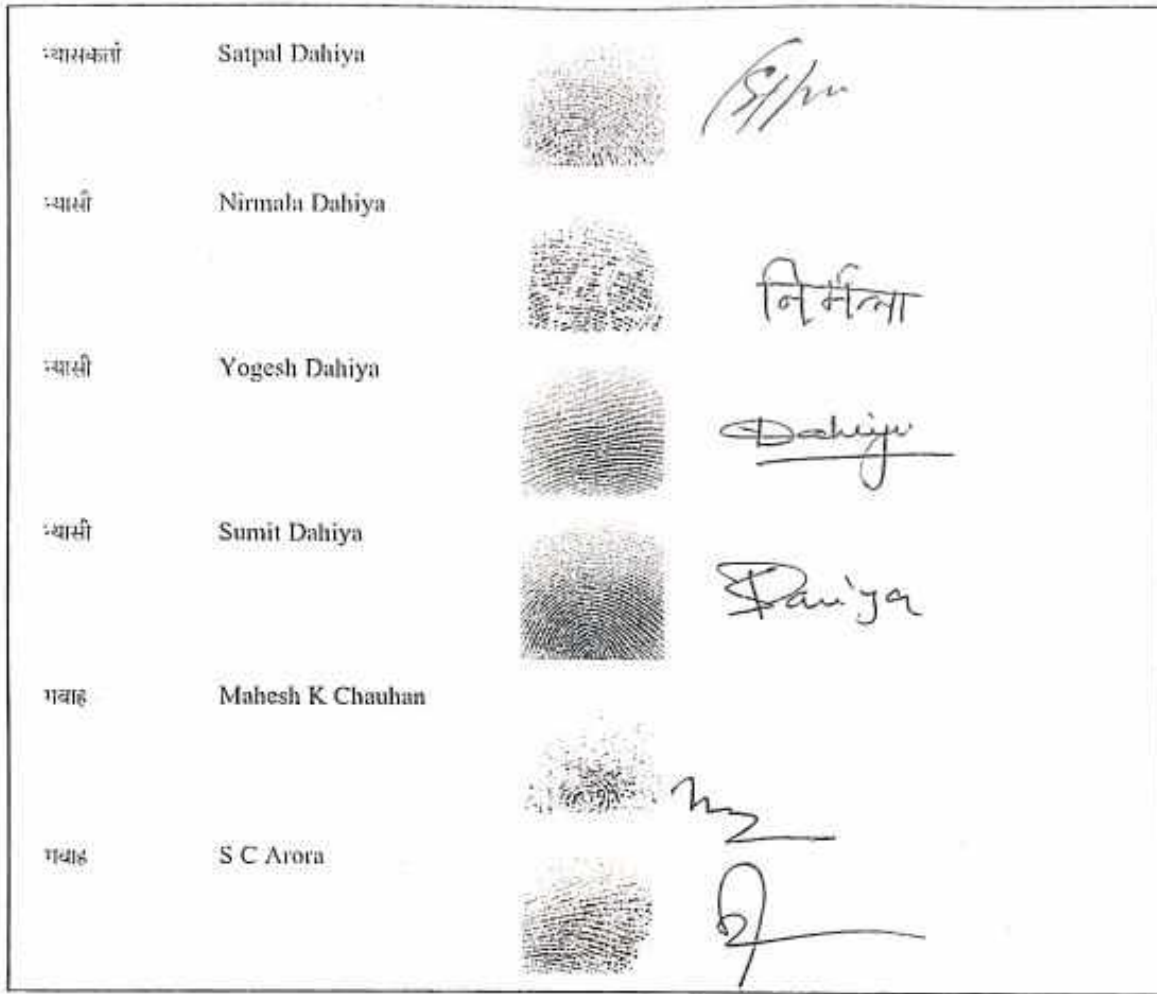 न्यासकर्ता Satpal Dahiya
न्यासी Nirmala Dahiya
निर्मला
न्यासी Yogesh Dahiya
Dahiya
न्यासी Sumit Dahiya
Dahiya
गवाह Mahesh K Chauhan
गवाह S C Arora